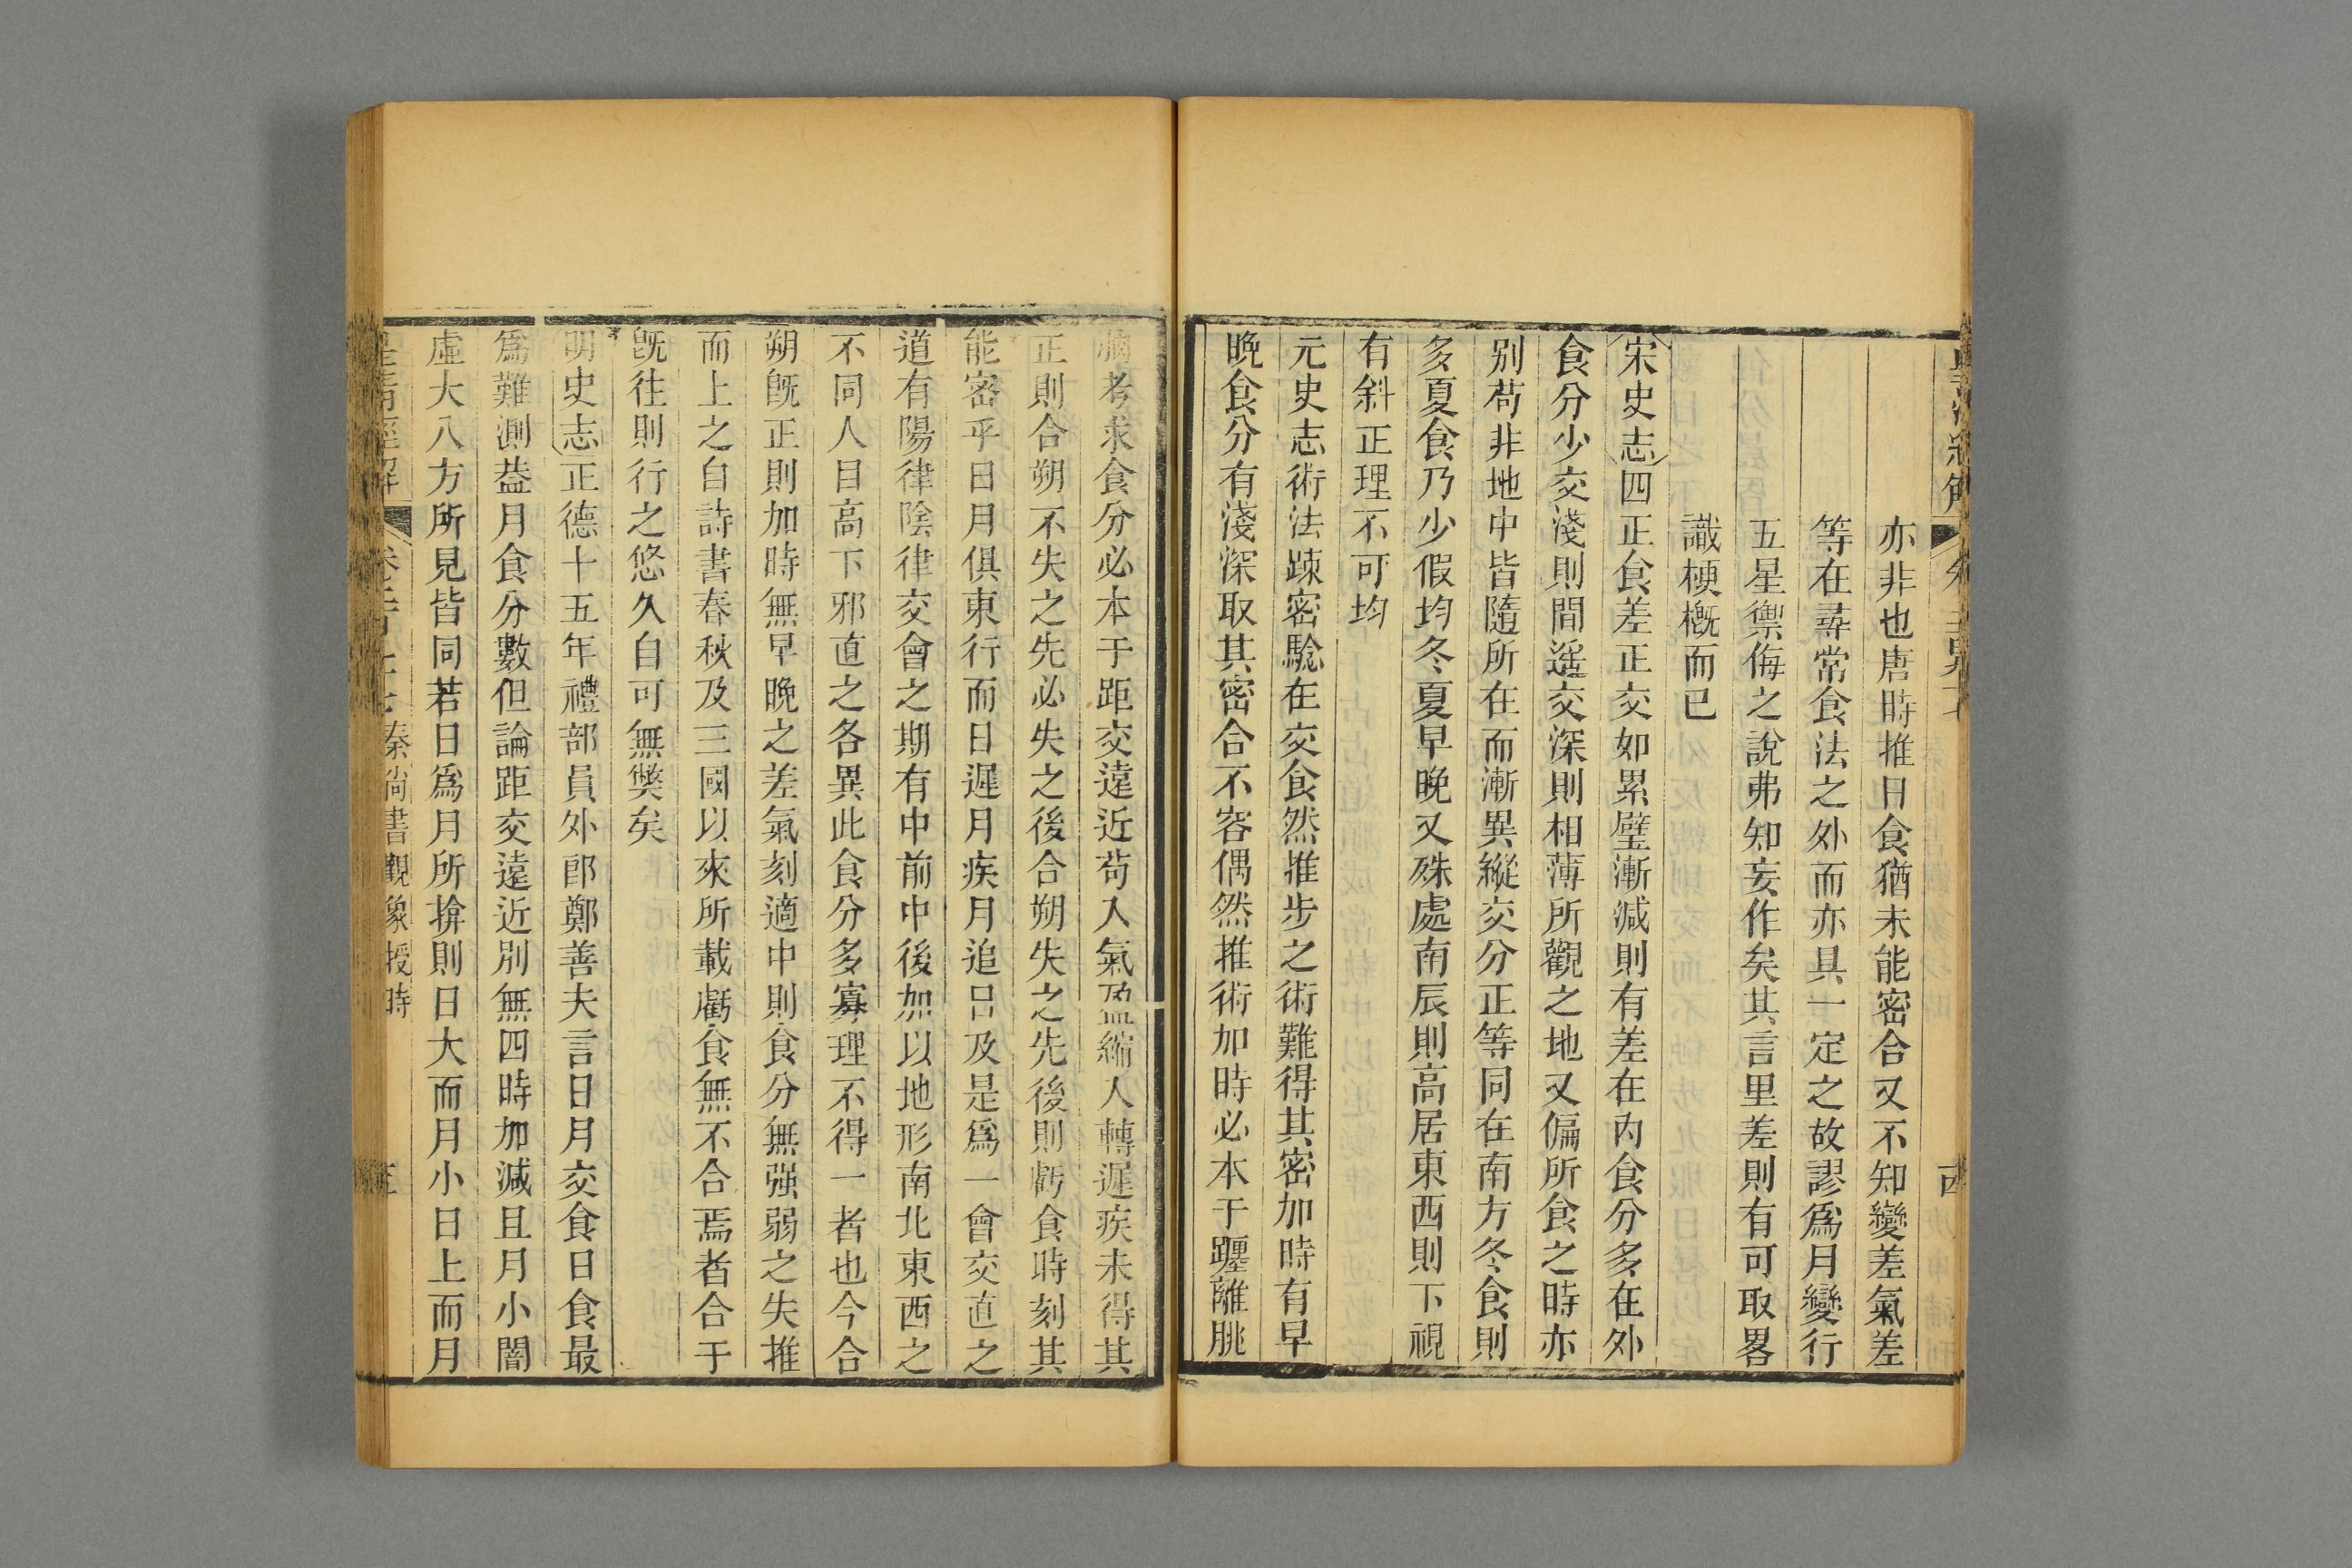 亦非也唐時推日食猶未能密合又不知變差氣差
等在尋常食法之外而亦具一定之故謬爲月變行
五星禦侮之說弗知妄作矣其言里差則有可取畧
識梗槪而已
宋史志四正食差正交如累璧漸減則有差在內食分多在外
食分少交淺則間遥交深則相薄所觀之地又偏所食之時亦
别苟非地中皆隨所在而漸異縱交分正等同在南方冬食則
多夏食乃少假均冬夏早晚又殊處南辰則高居東西則下視
有斜正理不可均
元史志術法踈密驗在交食然推步之術難得其密加時有早
晚食分有淺深取其密合不容偶然推術加時必本于躔離朓
朒考求食分必本于距交遠近苟入氣盈縮入轉遲疾未得其
正則合朔不失之先必失之後合朔失之先後則虧食時刻其
能密乎日月俱東行而日遲月疾月追日及是爲一會交直之
道有陽律陰律交會之期有中前中後加以地形南北東西之
不同人目高下邪直之各異此食分多寡理不得一者也今合
朔旣正則加時無早晚之差氣刻適中則食分無强弱之失推
而上之自詩書春秋及三國以來所載虧食無不合焉者合于
旣往則行之悠久自可無獘矣
明史志正德十五年禮部員外郎鄭善夫言日月交食日食最
爲難測葢月食分數但論距交遠近別無四時加減且月小闇
虛大八方所見皆同若日爲月所揜則日大而月小日上而月
秦尚書觀象授時